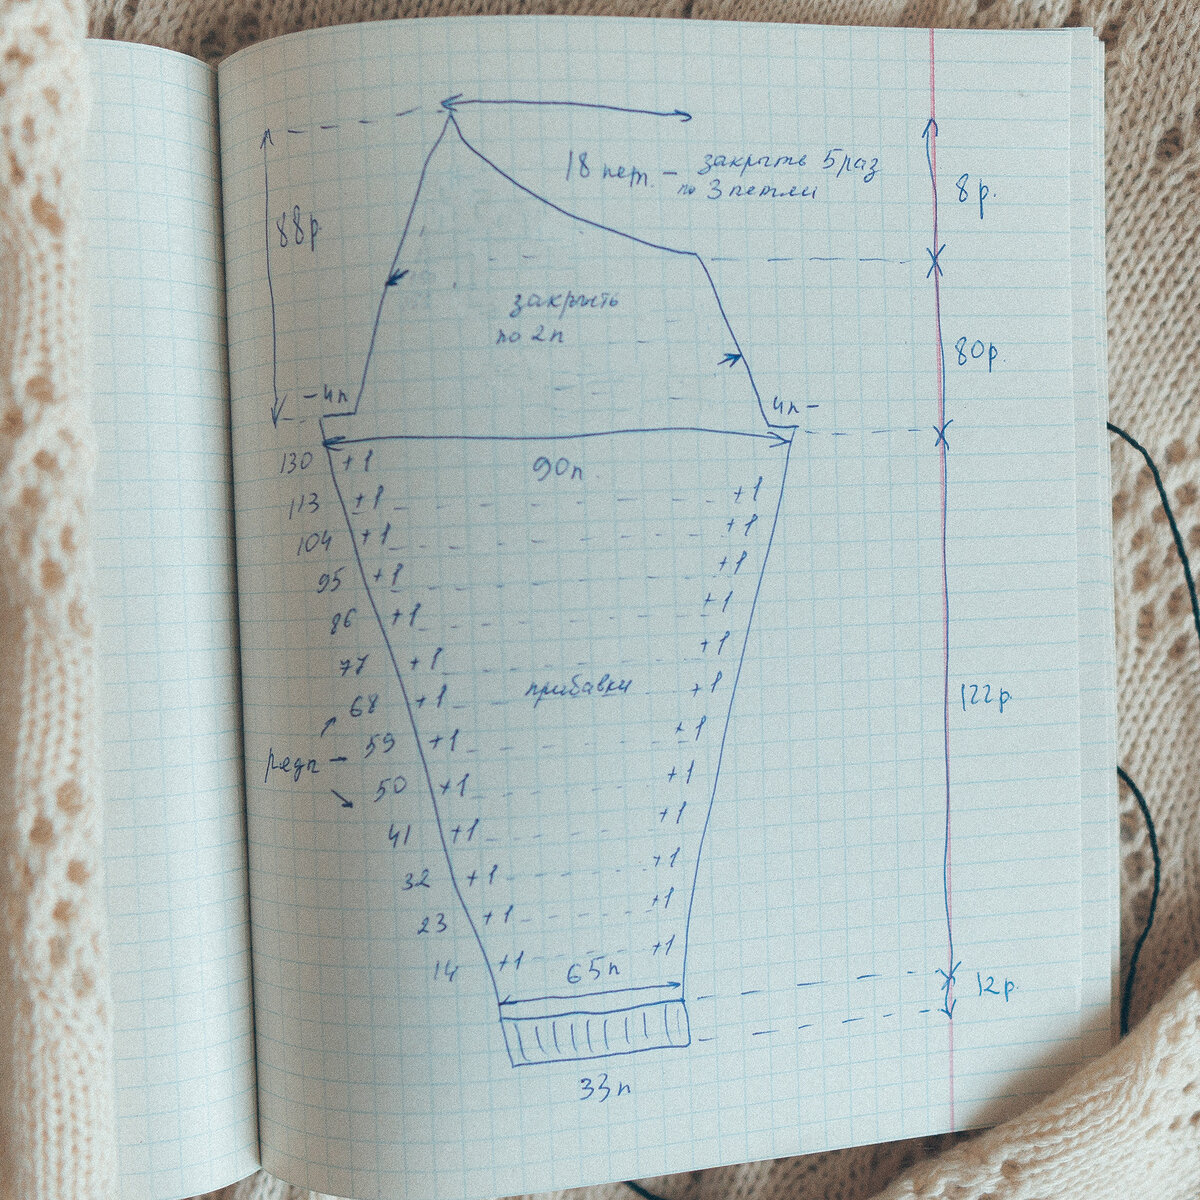 18 пет. – закрыть 5 раз
по 3 петли
8р.
88р
закрыть
по 2п
80р.
-4п
4п-
90п.
130 +1
113 +1 +1
104 +1 +1
95 +1 +1
86 +1 +1
77 +1 +1
прибавки
68 +1 +1
122р.
59 +1 +1
50 +1 +1
41 +1 +1
32 +1 +1
23 +1 +1
14 +1 +1
65п
12р.
33п